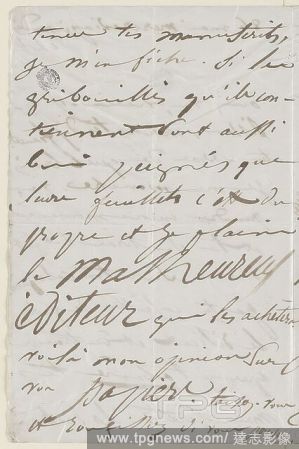 tenir tes manuscrits,
je m'en fiche. Si les
gribouillis qu'ils con-
tiennent sont aussi
bien peignés que
leurs feuillets c'est du
propre et je plains
le malheureux
éditeur qui les achètera
voilà mon opinion sur
vos papiers.
et
TPG
www.tpgnews.com/達志影像